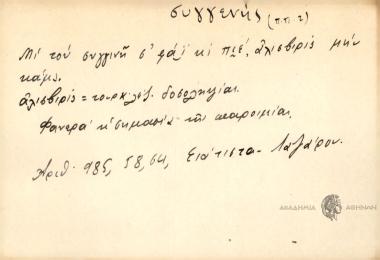 συγγενής (π.π. 2)
Μὶ τοὺ συγγινῆ σ' φάϊ κὶ πιέ, ἀλισβιρίς μὴν
κάμς.
ἀλισβιρίς = τουρκ. λεξ. δοσοληψίαι.
Φανερὰ ἡ σημασία τῆς παροιμίας.
Ἀριθ. 985, 58, 64, Σιάτιστα - Λαζάρου.
ΑΚΑΔΗΜΙΑ ΑΘΗΝΩΝ